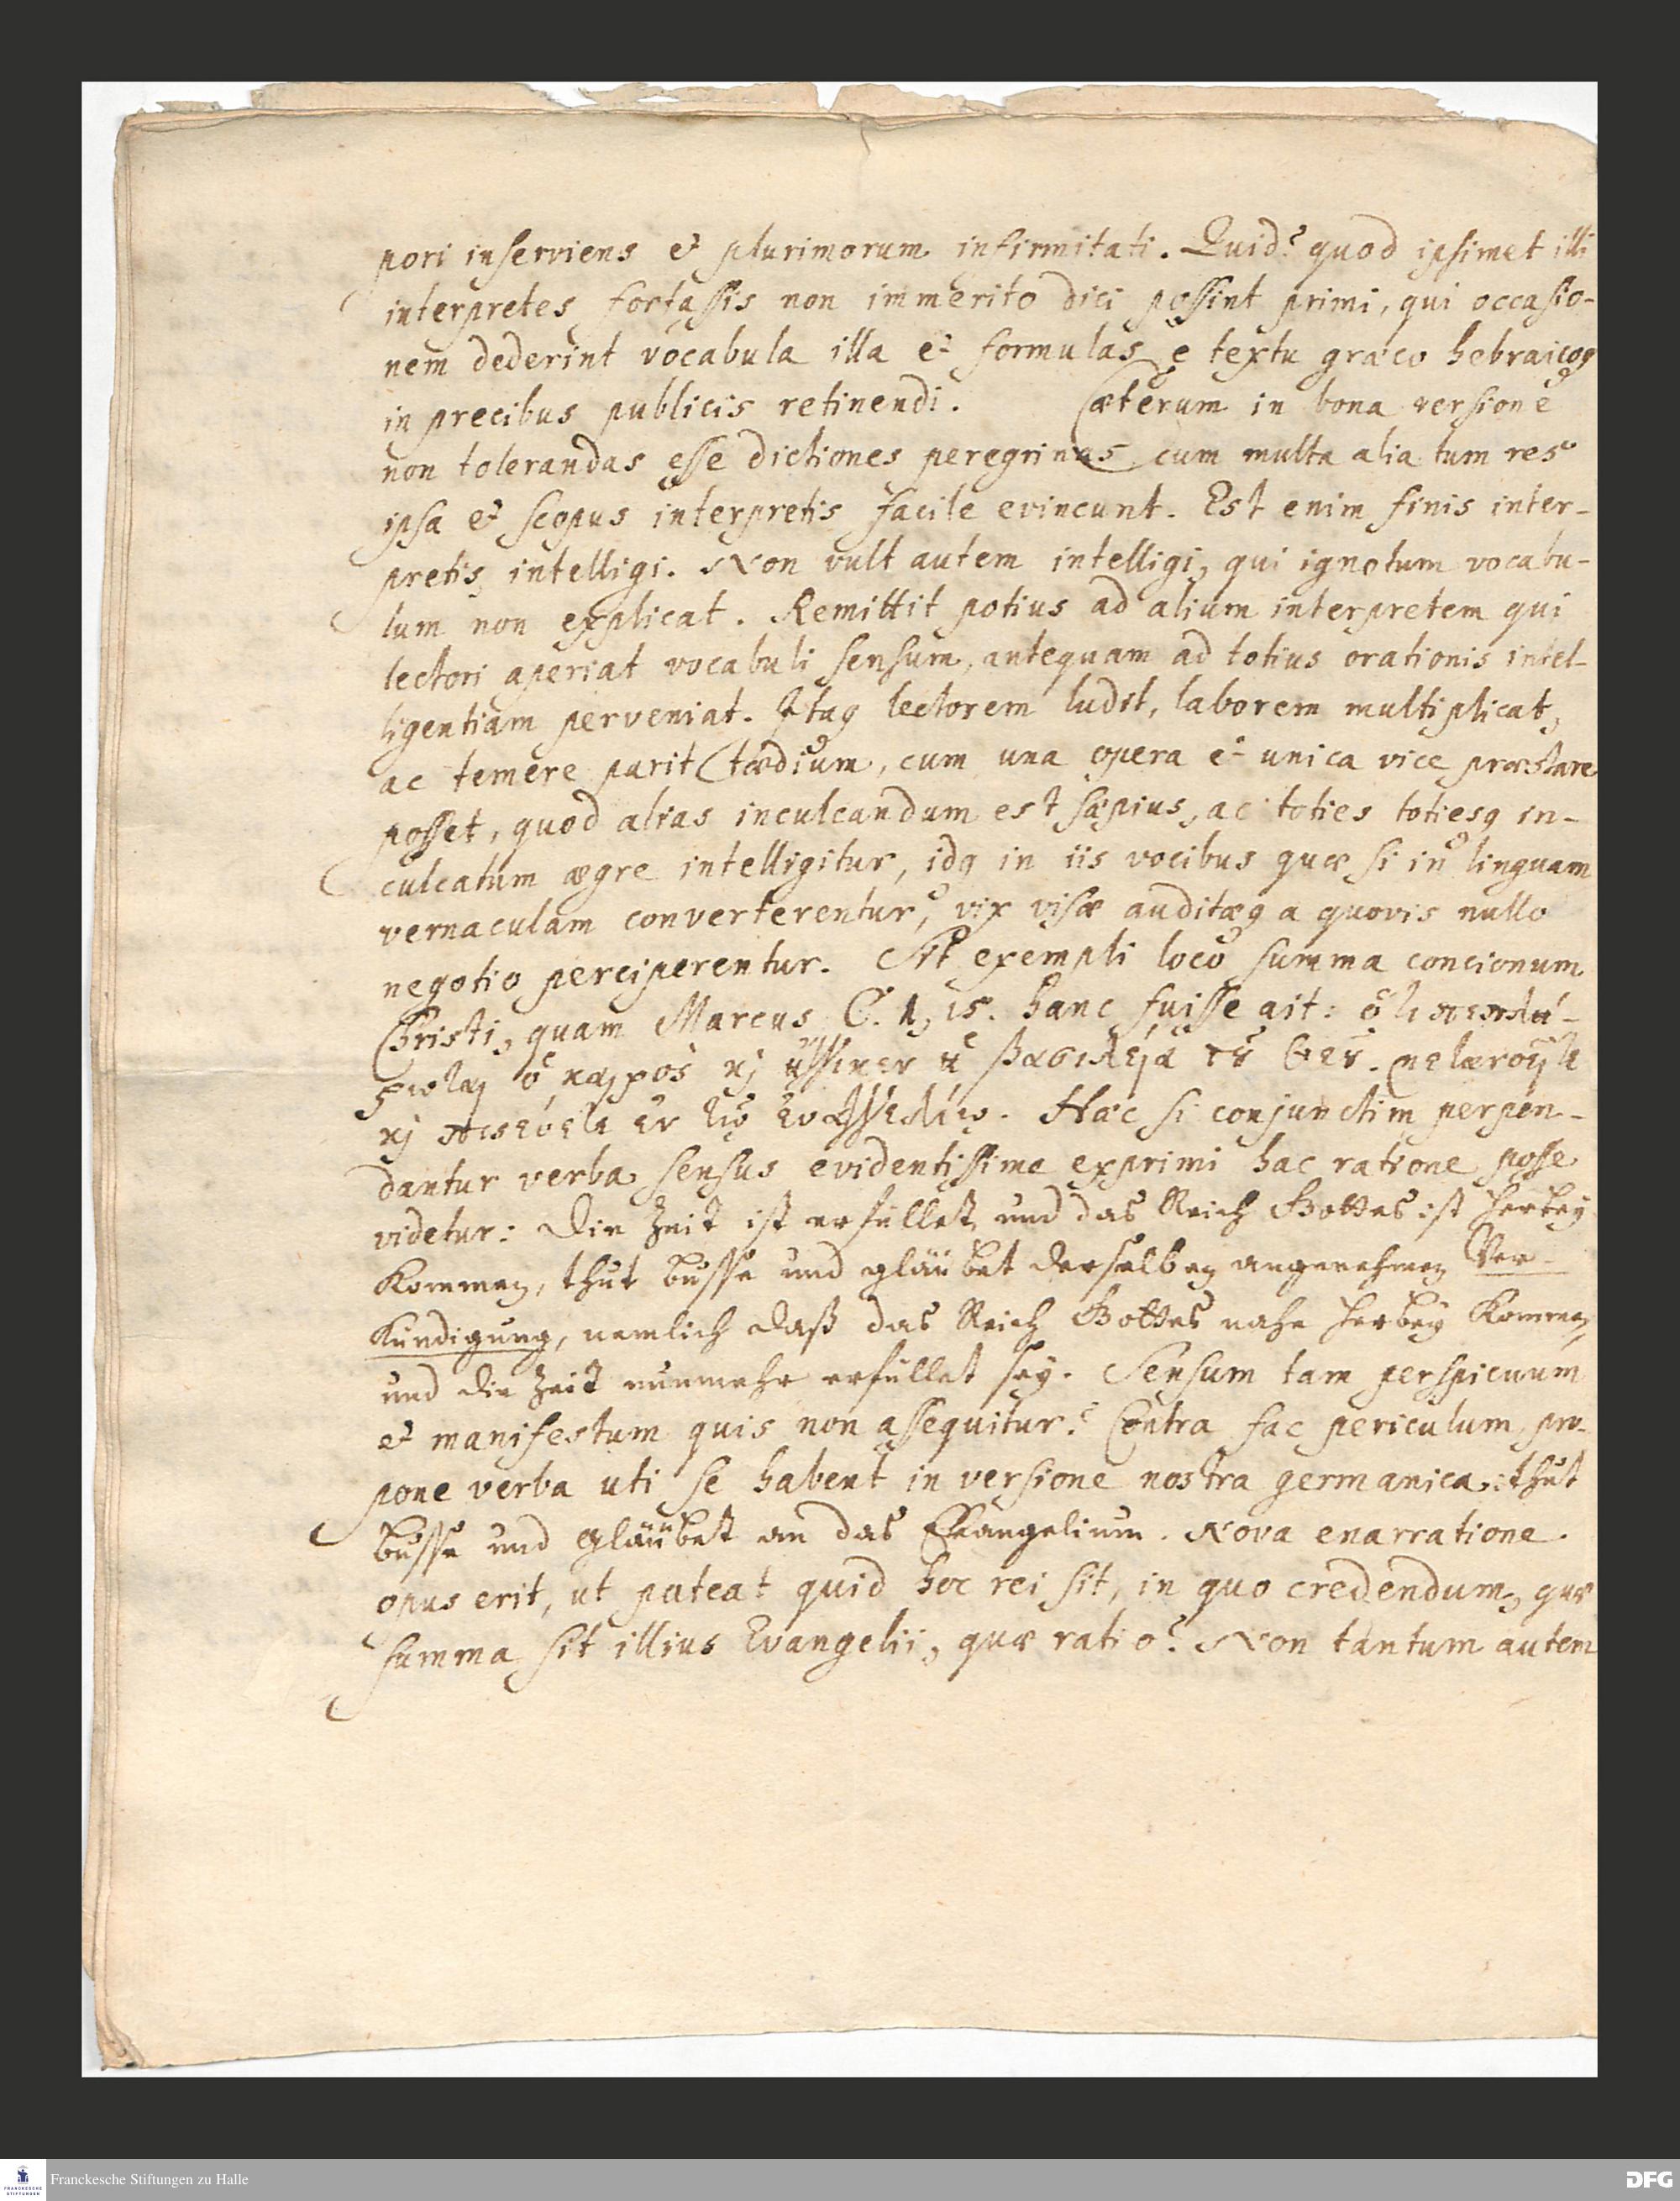 pori inserviens et plurimorum infirmitati. Quid? quod ipsimet illi
interpretes fortassis non immerito dici possint primi, qui occasio-
nem dederint vocabula illa et formulas e textu græco hebraicoq
in precibus publicis retinendi. Cæterum in bona versione
non tolerandas esse dictiones peregrinas cum multa alia tum res
ipsa et scopus interpretis facile evincunt. Est enim finis inter-
pretis, intelligi. Non vult autem intelligi, qui ignotum vocabu-
lum non explicat. Remittit potius ad alium interpretem qui
lectori aperiat vocabuli sensum, antequam ad totius orationis intel-
ligentiam perveniat. Itaq lectorem ludit, laborem multiplicat,
ac temere parit tædium, cum una opera et unica vice præstare
posset, quod alias inculcandum est sæpius, ac toties totiesq in-
culcatum ægre intelligitur, idq in iis vocibus quæ si in linguam
vernaculam converterentur, vix visæ auditæq a quovis nullo
negotio perciperentur. Sit exempli loco summa concionum
Christi, quam Marcus C. 1, 15. hanc fuisse ait: ὅτι πεπλή-
ρωται ὁ καιρὸς καὶ ἤγγικεν ἡ βασιλεία τοῦ Θεοῦ. μετανοεῖτε
καὶ πιστεύετε ἐν τῷ εὐαγγελίῳ. Hæc si conjunctim perpen-
dantur verba sensus evidentissime exprimi hac ratione posse
videtur: Die Zeit ist erfüllet, und das Reich Gottes ist herbey
kommen, thut busse und gläubet derselben angenehmen Ver-
kündigung, nemlich daß das Reich Gottes nahe herbey kommen,
und die Zeit nunmehr erfüllet sey. Sensum tam perspicuum
et manifestum quis non assequitur? Contra fac periculum, pro-
pone verba uti se habent in versione nostra germanica: thut
busse und gläubet an das Evangelium. Nova enarratione
opus erit, ut pateat quid hoc rei sit, in quo credendum, quæ
summa sit illius Evangelii, quæ ratio? Non tantum autem
Franckesche Stiftungen zu Halle
FRANCKESCHE STIFTUNGEN
DFG